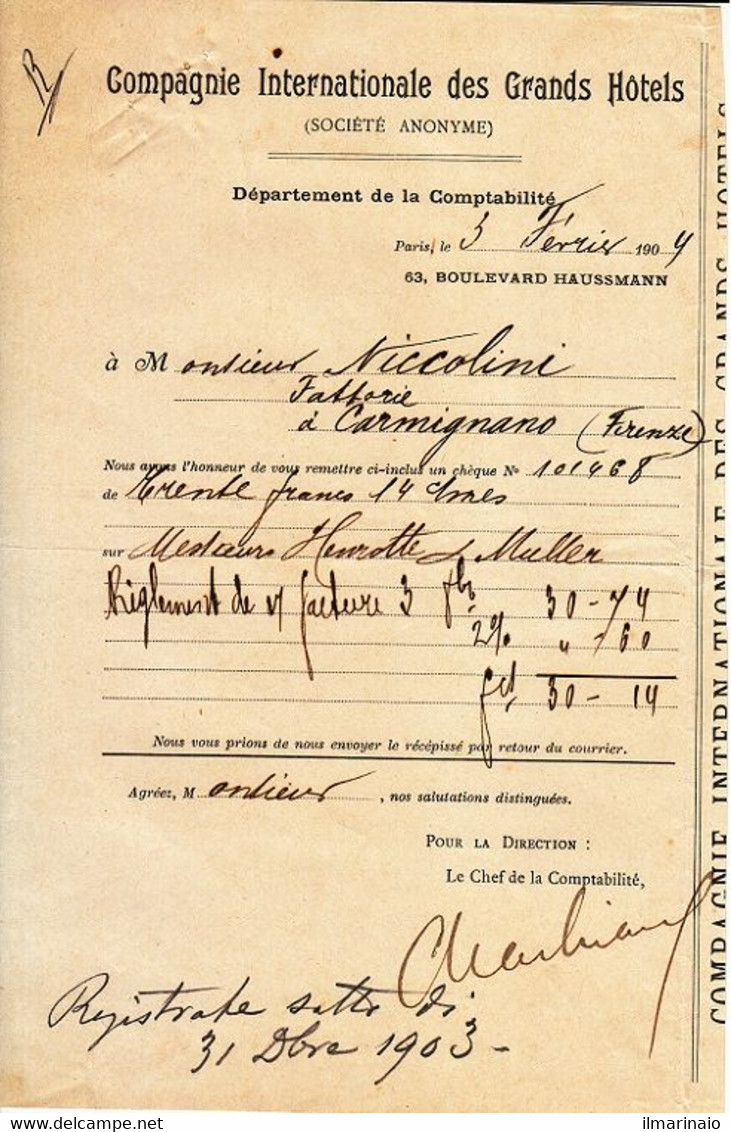 Compagnie Internationale des Grands Hôtels
(SOCIÉTÉ ANONYME)
Département de la Comptabilité
Paris, le 3 Février 1904
63, BOULEVARD HAUSSMANN
à Monsieur Niccolini
Fattorie
à Carmignano (Firenze)
Nous avons l'honneur de vous remettre ci-inclus un chèque No 101468
de Trente francs 14 cmes
sur Messieurs Henrotte & Muller
Règlement de v/ facture 3 Xbre 30-74
2% " - 60
fcs 30 - 14
Nous vous prions de nous envoyer le récépissé par retour du courrier.
Agréez, Monsieur, nos salutations distinguées.
POUR LA DIRECTION :
Le Chef de la Comptabilité,
Registrate sotto di
31 Dbre 1903 -
COMPAGNIE INTERNATIONALE DES GRANDS HOTELS
ilmarinaio